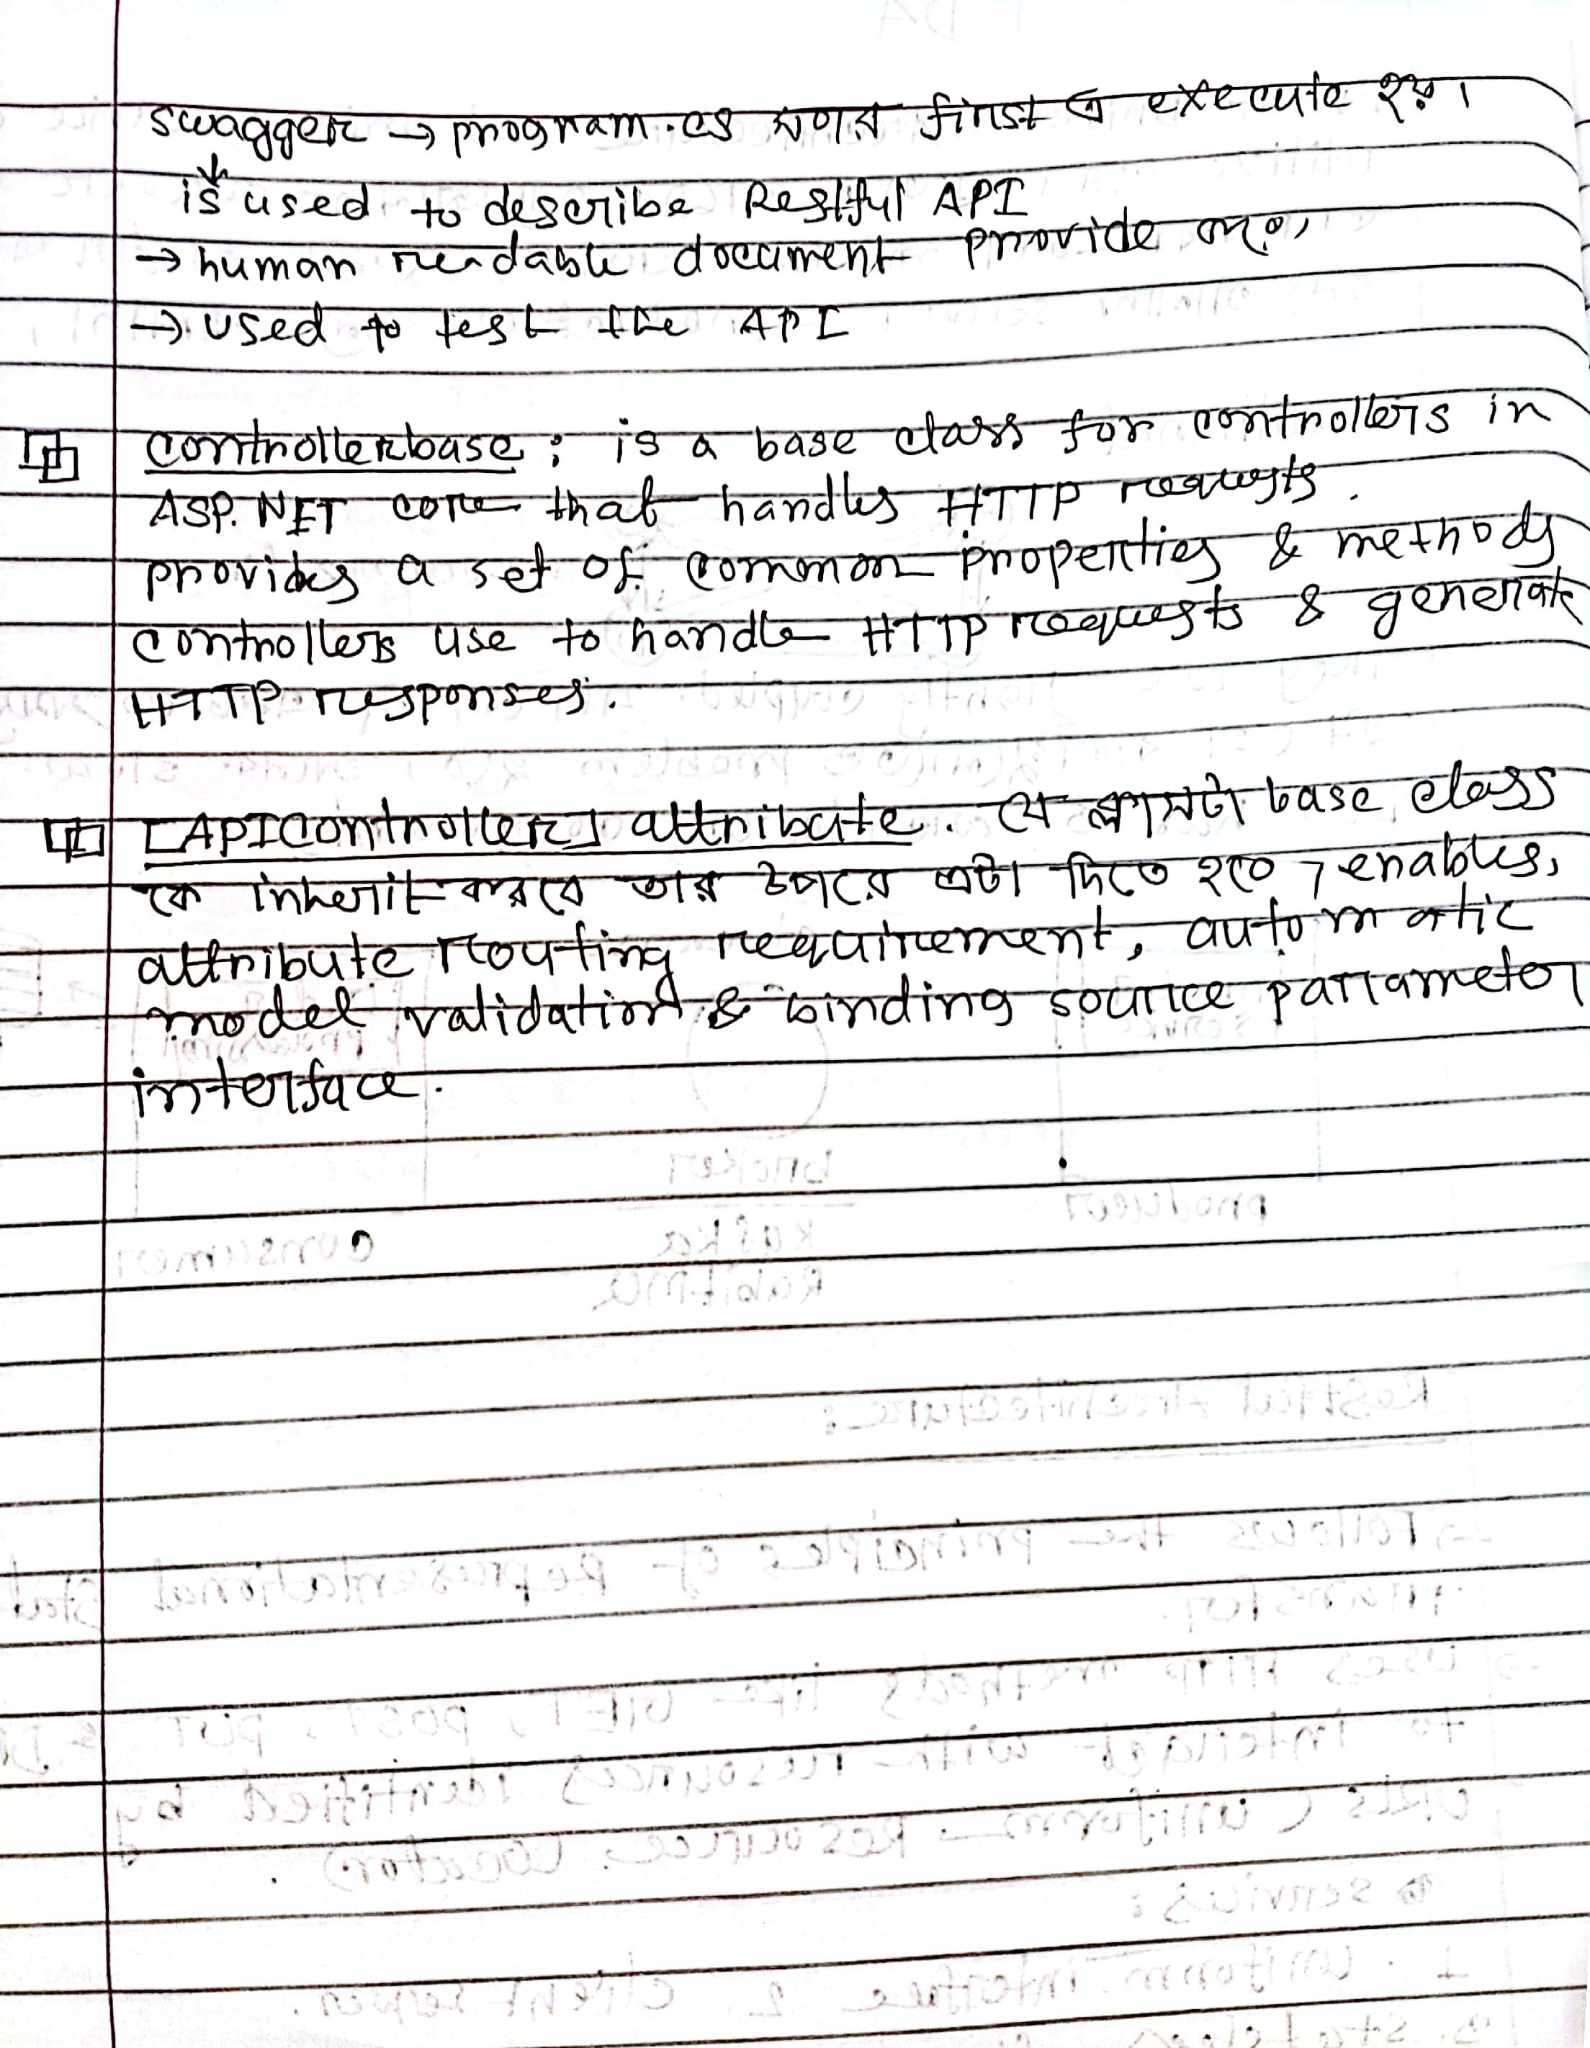 swagger → program.cs সবার first এ execute হয়।
is used to describe Restful API
→ human readable document provide করে,
→ used to test the API
Controllerbase : is a base class for controllers in
ASP.NET core that handles HTTP requests.
provides a set of common properties & methods
controllers use to handle HTTP requests & generate
HTTP responses.
[APIController] attribute. যে ক্লাসটা base class
কে inherit করবে তার উপরে এটা দিতে হবে, enables,
attribute routing requirement, automatic
model validation & binding source parrameter
interface.